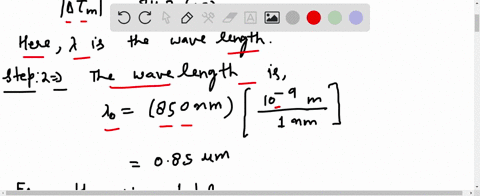 |ΔTm|
Here, λ is the wave length.
Step:2=> The wave length is,
λ₀ = (850 nm) [10⁻⁹ m / 1 nm]
= 0.85 um